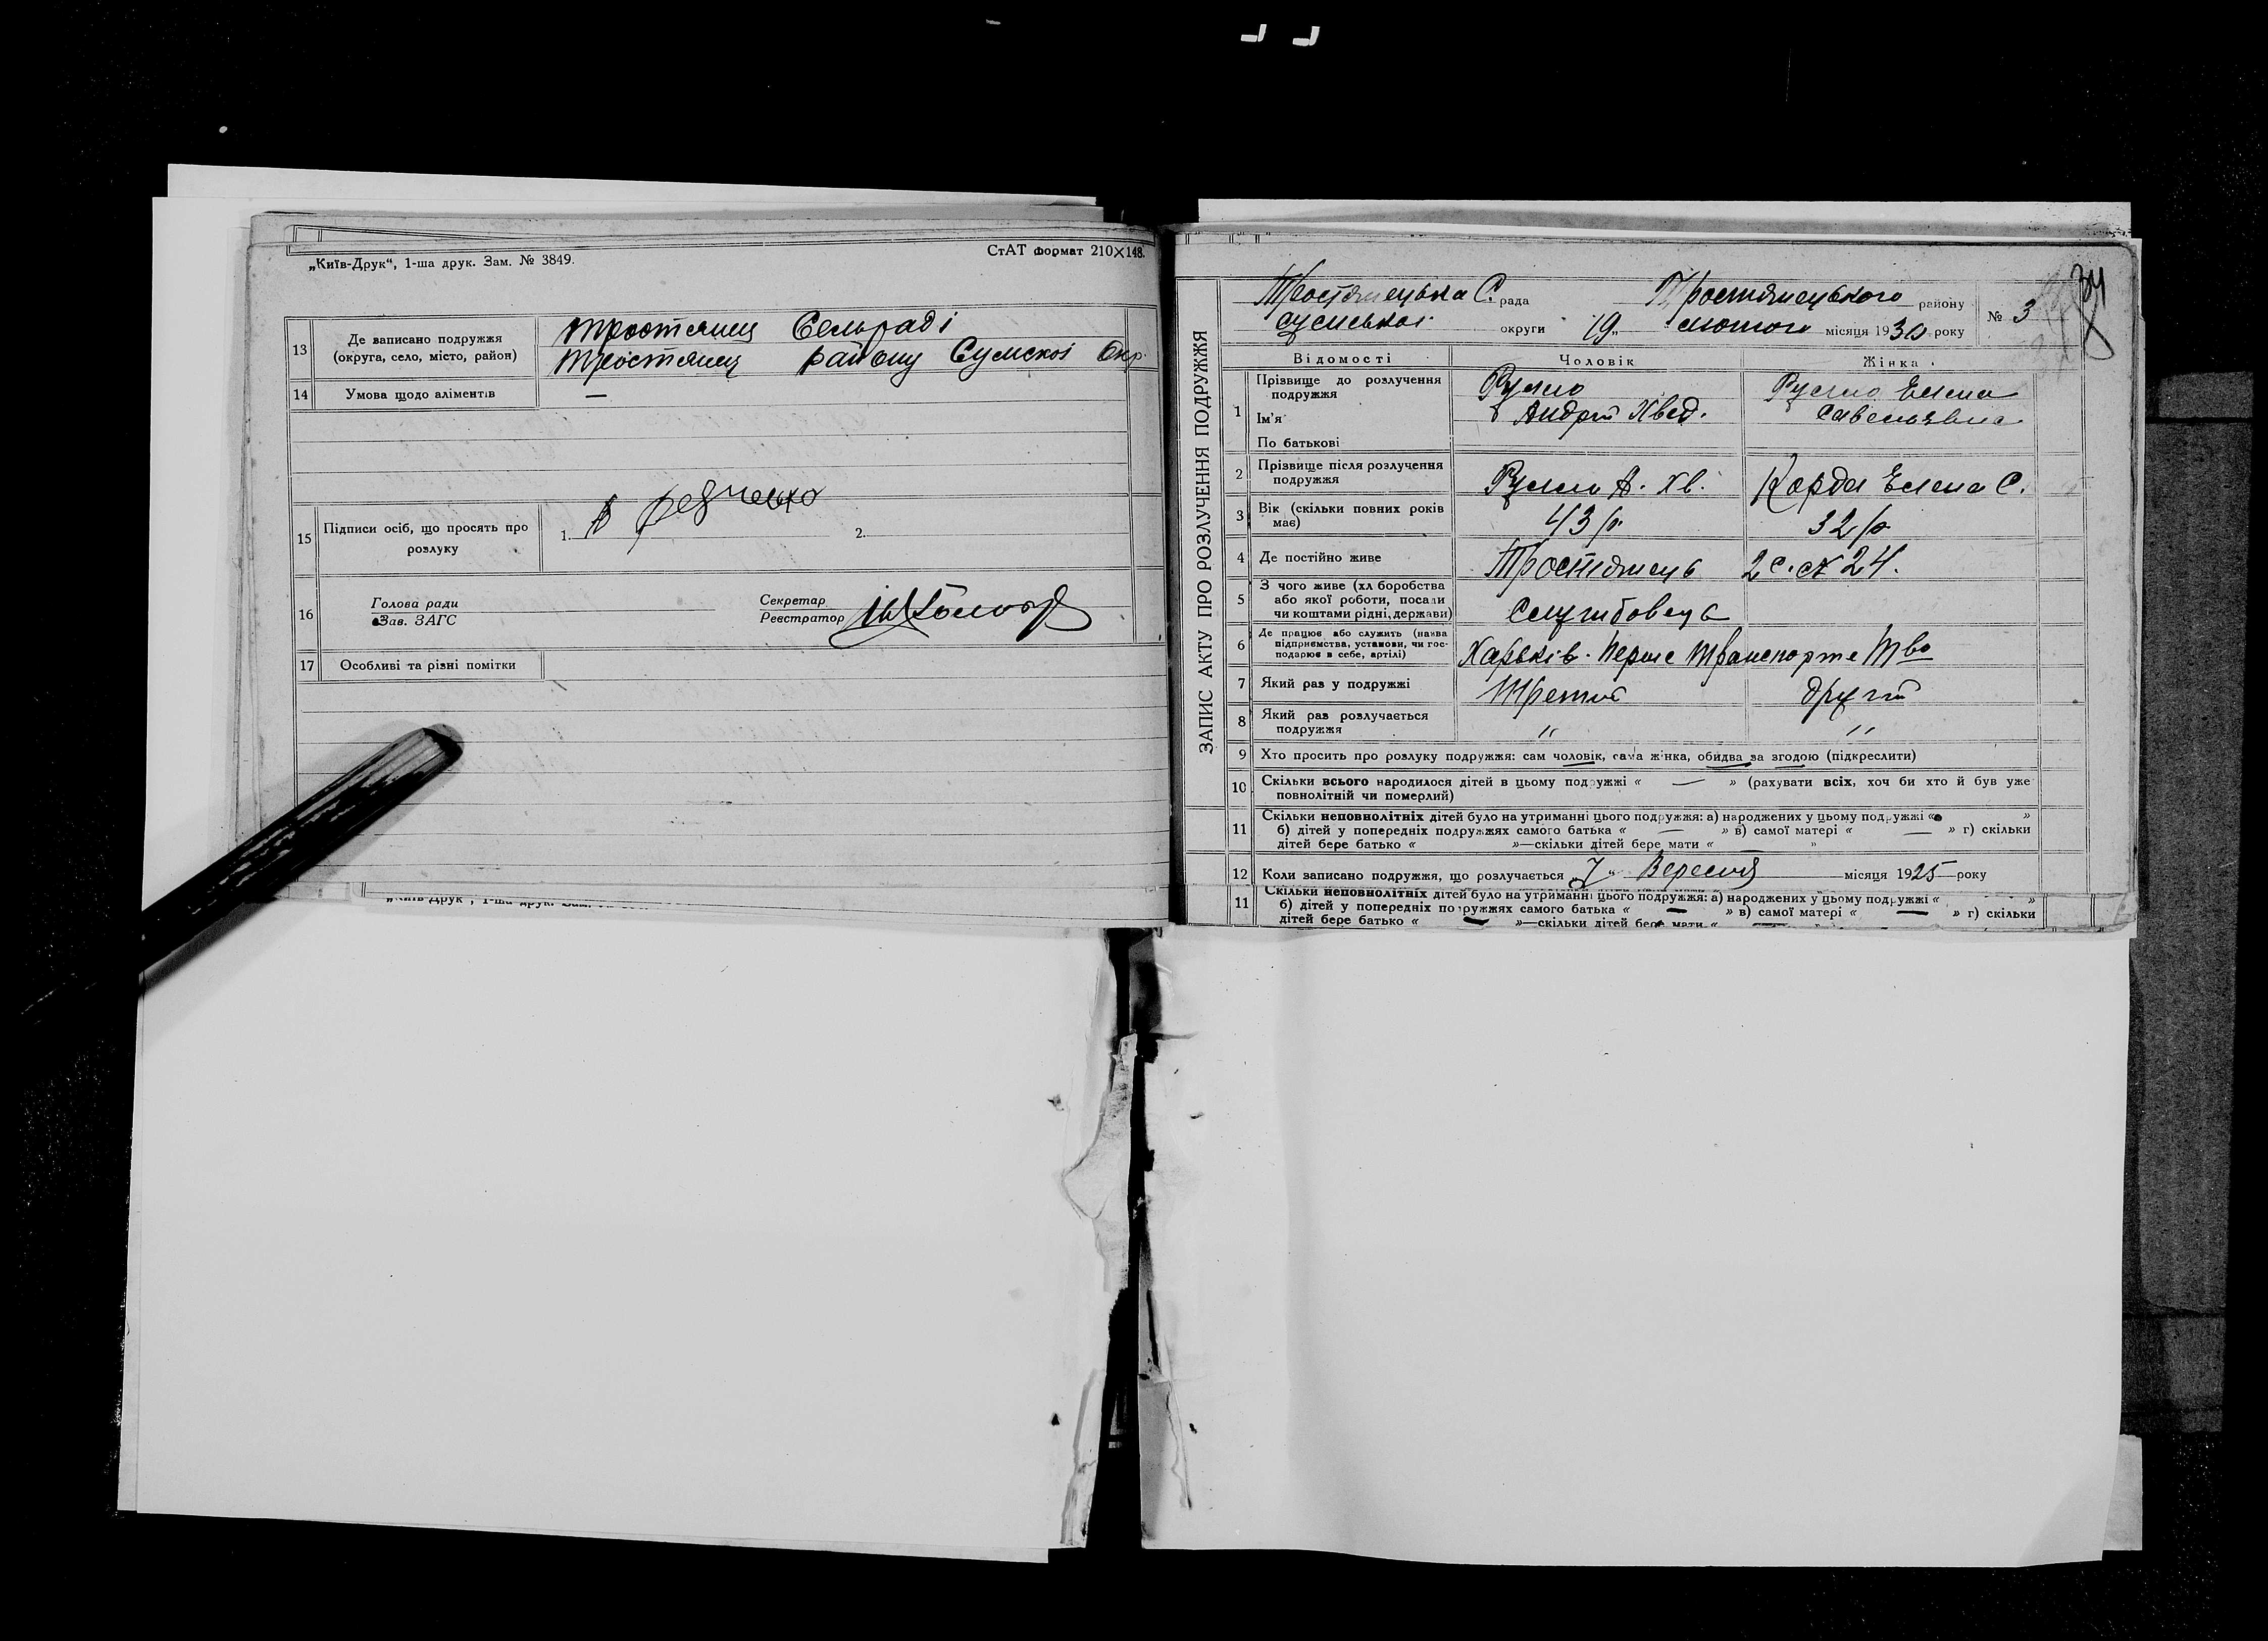 „Київ-Друк“, 1-ша друк. Зам. № 3849.
СтАТ формат 210×148.
13 Де записано подружжя (округа, село, місто, район)
Тростянец Сельраді
Тростянец району Сумскоі Окр.
14 Умова щодо аліментів —
15 Підписи осіб, що просять про розлуку 1. А 2.
16 Голова ради
Зав. ЗАГС
Секретар
Реєстратор
17 Особливі та різні помітки
„Київ-Друк“, 1-ша друк. Зам.
ЗАПИС АКТУ ПРО РОЗЛУЧЕННЯ ПОДРУЖЖЯ
34
Тростянецька С. рада Тростянецького району № 3
Сумської округи 19 „ лютого місяця 1930 року
Відомості Чоловік Жінка
1 Прізвище до розлучення подружжя
Ім'я
По батькові
Андрій Хвед.
Елена
Савельевна
2 Прізвище після розлучення подружжя
А. Хв.
Корда Елена С.
3 Вік (скільки повних років має) 43 р. 32 р.
4 Де постійно живе Тростянець 2 с. 24.
5 З чого живе (хліборобства або якої роботи, посади чи коштами рідні, держави) Службовець
6 Де працює або служить (назва підприємства, установи, чи господарює в себе, артілі) Харьків. Перше Транспортне Тво
7 Який раз у подружжі Третий другий
8 Який раз розлучається подружжя " "
9 Хто просить про розлуку подружжя: сам чоловік, сама жінка, обидва за згодою (підкреслити)
10 Скільки всього народилося дітей в цьому подружжі « — » (рахувати всіх, хоч би хто й був уже
повнолітній чи померлий)
11 Скільки неповнолітніх дітей було на утриманні цього подружжя: а) народжених у цьому подружжі « »
б) дітей у попередніх подружжях самого батька « — » в) самої матері « — » г) скільки
дітей бере батько « »—скільки дітей бере мати « »
12 Коли записано подружжя, що розлучається 7 " Вересня місяця 1925 року
11 Скільки неповнолітніх дітей було на утриманні цього подружжя: а) народжених у цьому подружжі « »
б) дітей у попередніх подружжях самого батька « — » в) самої матері « — » г) скільки
дітей бере батько « — »—скільки дітей бере мати «